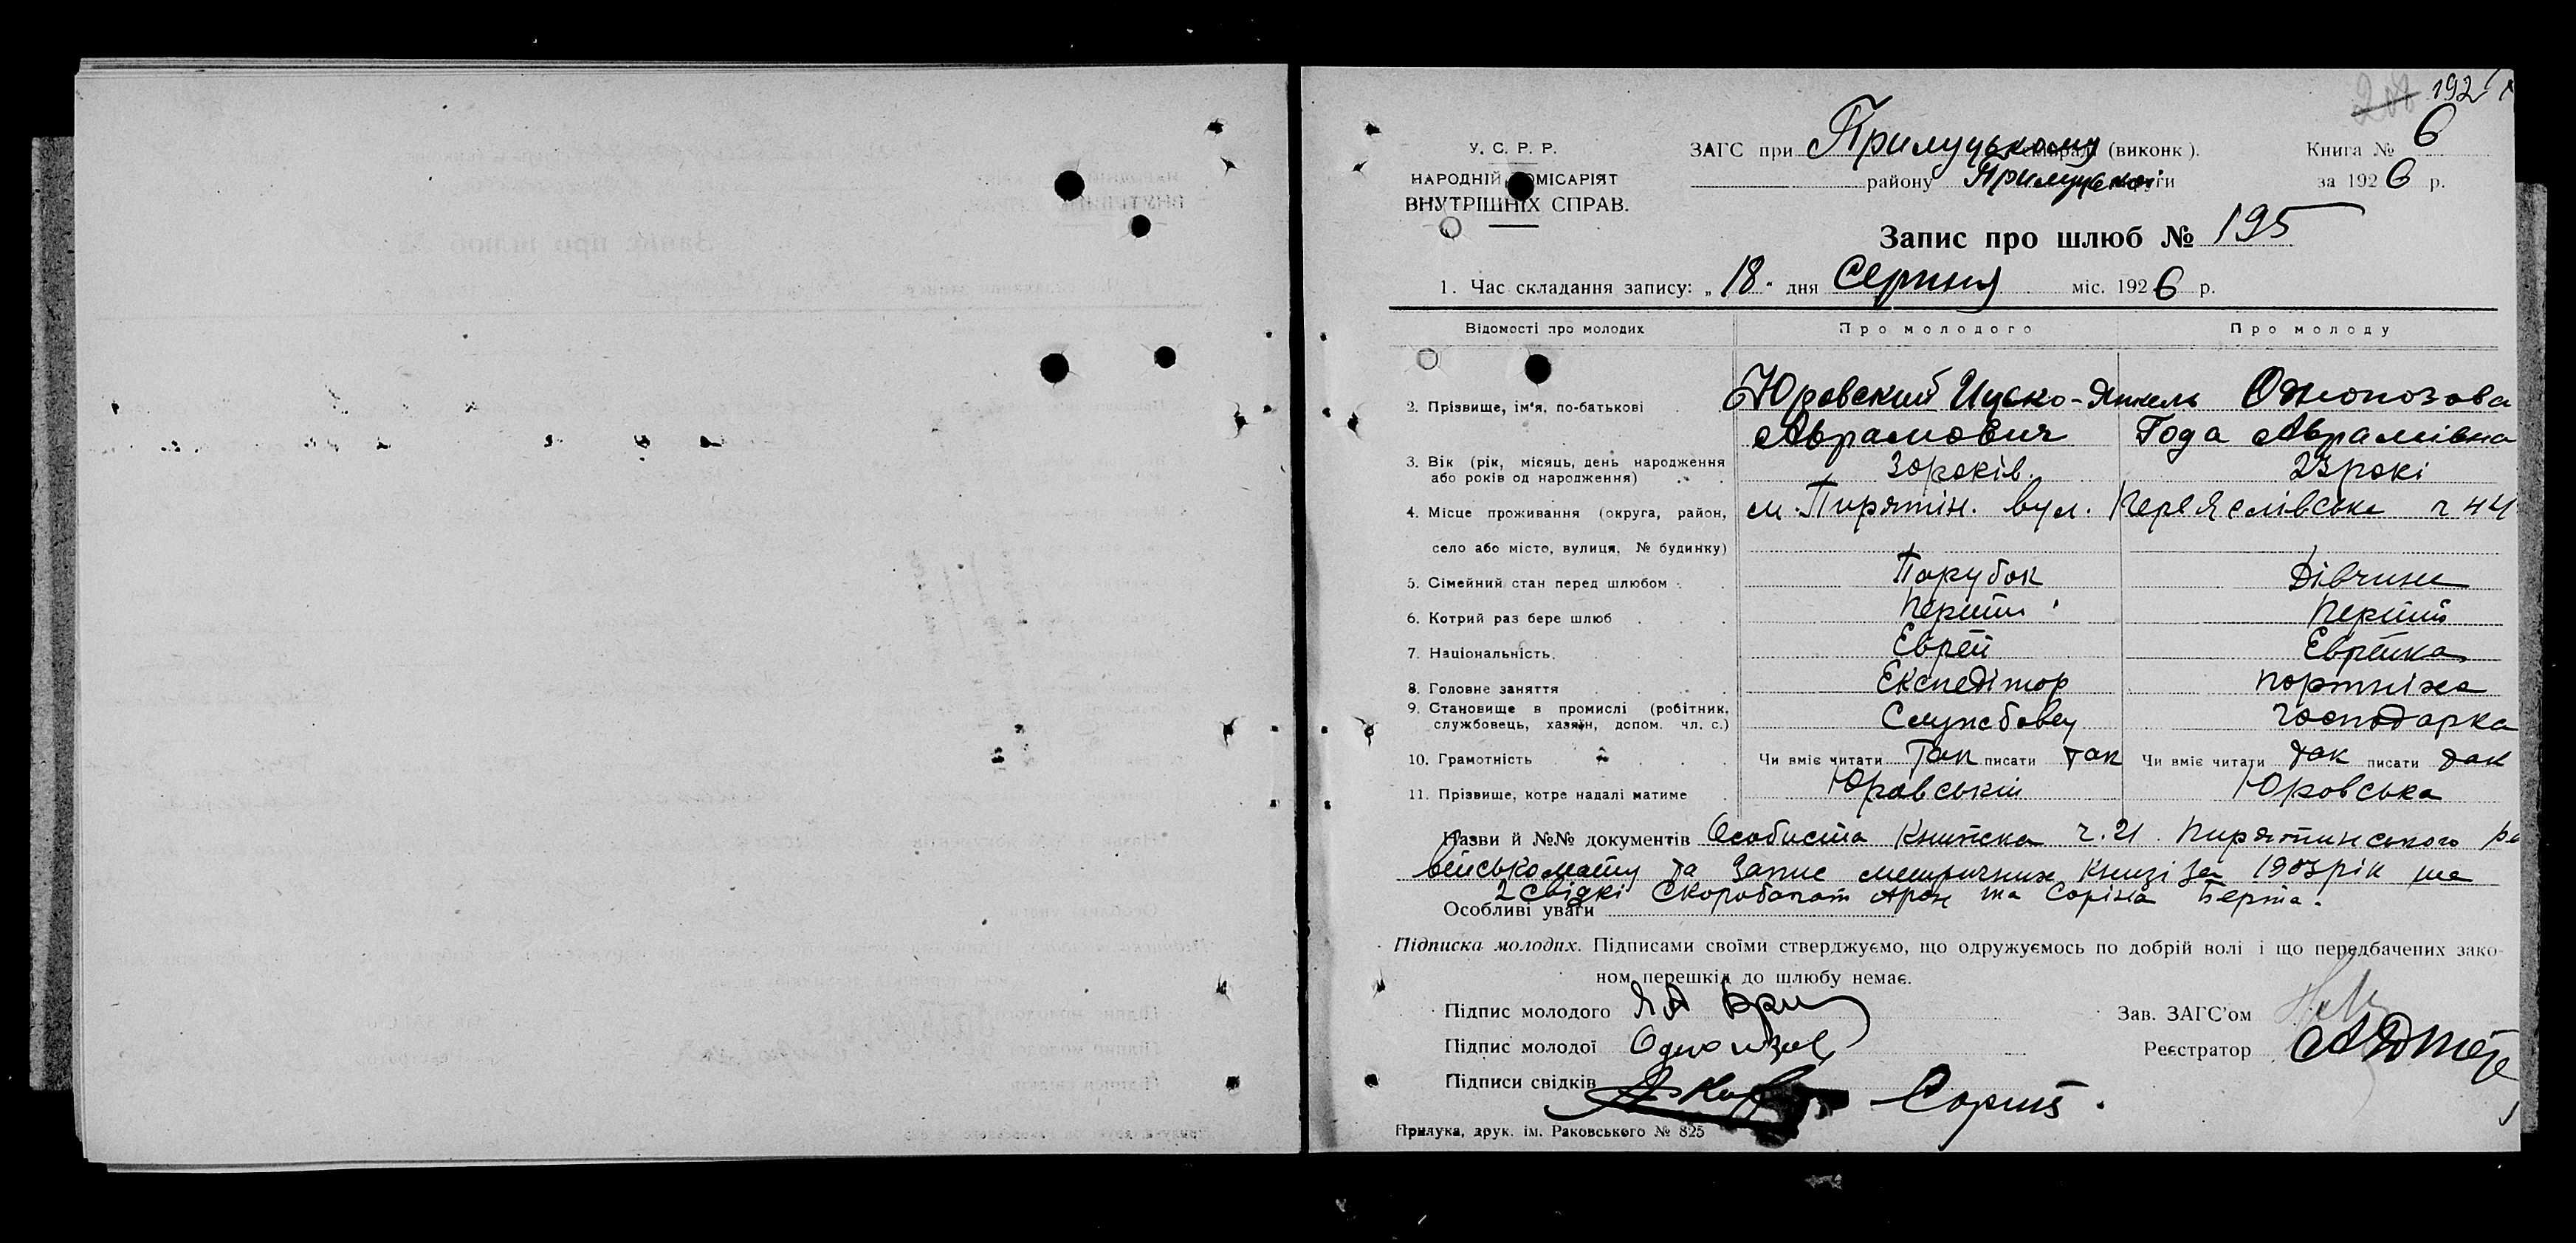 192
У. С. Р. Р.
ЗАГС при Прилуцькому (виконк).
Книга № 6
НАРОДНІЙ КОМІСАРІЯТ
району Прилуцької
за 1926 р.
ВНУТРІШНІХ СПРАВ.
Запис про шлюб № 195
1. Час складання запису: „18" дня Серпня міс. 1926 р.
Відомості про молодих
Про молодого
Про молоду
2. Прізвище, ім'я, по-батькові
Юровский Ицко-Янкель
Аврамович
Однопозова
Года Аврамівна
3. Вік (рік, місяць, день народження
або років од народження)
30 років.
23 рокі
4. Місце проживання (округа, район,
село або місто, вулиця, № будинку)
м. Пирятін. вул. Переяслівська ч 44
5. Сімейний стан перед шлюбом
Парубок
Дівчина
6. Котрий раз бере шлюб
перший
перший
7. Національність
Еврей
Еврейка
8. Головне заняття
Експедітор
портніха
9. Становище в промислі (робітник,
службовець, хазяїн, допом. чл. с.)
Службовец
господарка
10. Грамотність
Чи вміє читати Так писати так
Чи вміє читати так писати так
11. Прізвище, котре надалі матиме
Юровський
Юровська
Назви й №№ документів Особиста Книжка ч. 21 Пирятинського
військомату та Запис метричних книзі за 1903 рік та
2 свідкі Скоробагат Арон та Соріна Берта.
Особливі уваги
Підписка молодих. Підписами своїми стверджуємо, що одружуємось по добрій волі і що передбачених зако-
ном перешкід до шлюбу немає.
Підпис молодого
Зав. ЗАГС'ом
Підпис молодої
Реєстратор
Підписи свідків
Прилука, друк. ім. Раковського № 825